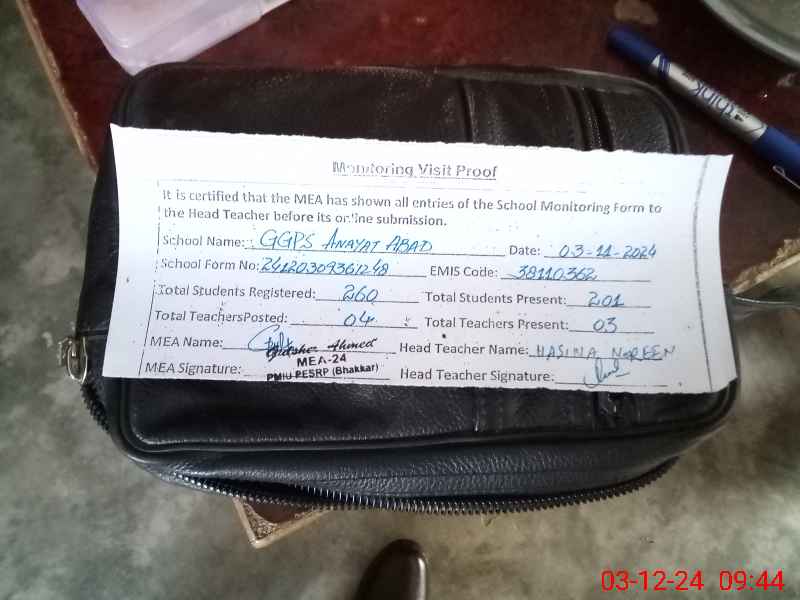 think
Monitoring Visit Proof
It is certified that the MEA has shown all entries of the School Monitoring Form to
the Head Teacher before its online submission.
School Name: GGPS ANAYAT ABAD Date: 03-11-2024
School Form No: 24120309361248 EMIS Code: 38110362
Total Students Registered: 260 Total Students Present: 201
Total TeachersPosted: 04 Total Teachers Present: 03
MEA Name: Ahmed Head Teacher Name: HASINA NOREEN
MEA-24
MEA Signature: PMIU PESRP (Bhakkar) Head Teacher Signature:
03-12-24 09:44